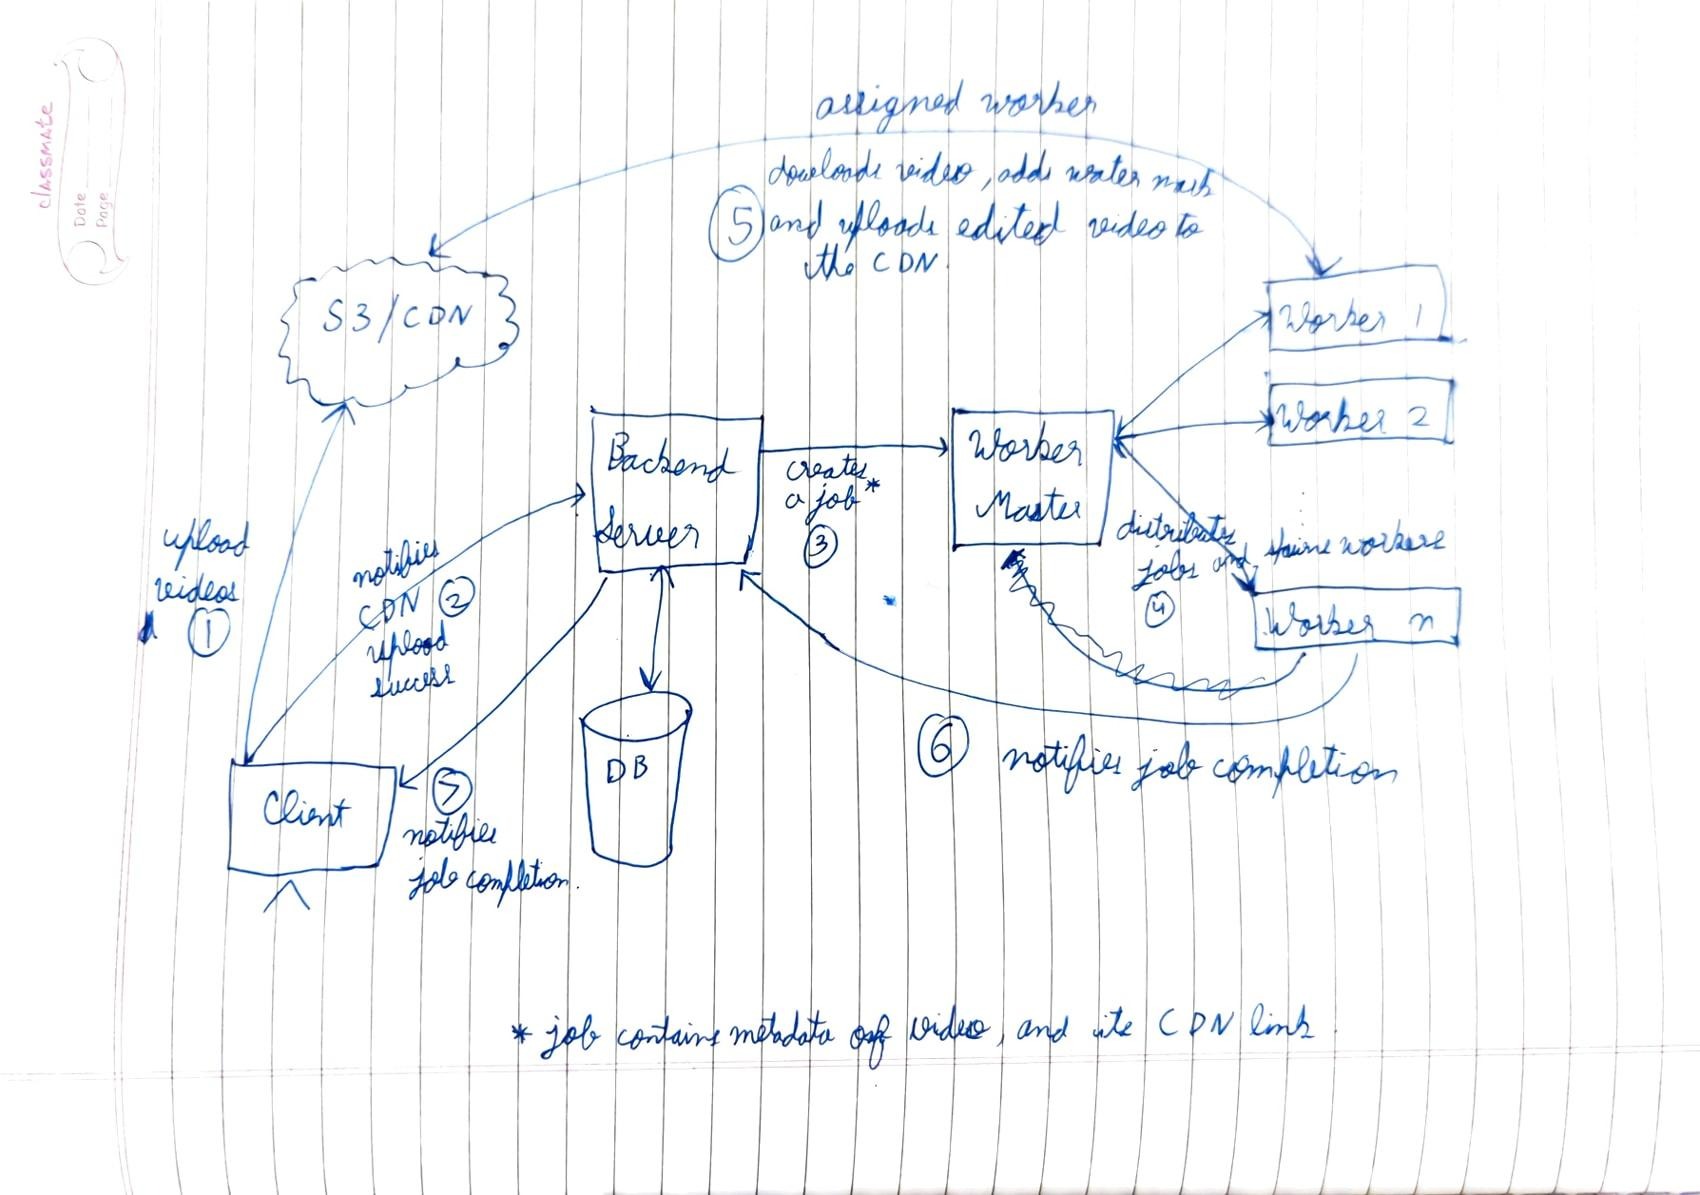 classmate
Date
Page
assigned worker
downloads video, adds water mark
5
and uploads edited video to
the CDN.
S3/CDN
Worker 1
Worker 2
Backend
Server
creates
a job*
3
Worker
Master
distributes
jobs and spains workers
4
Worker n
upload
videos
1
notifies
CDN 2
upload
success
6 notifies job completion
DB
Client
7
notifies
job completion.
* job contains metadata of video, and its CDN link